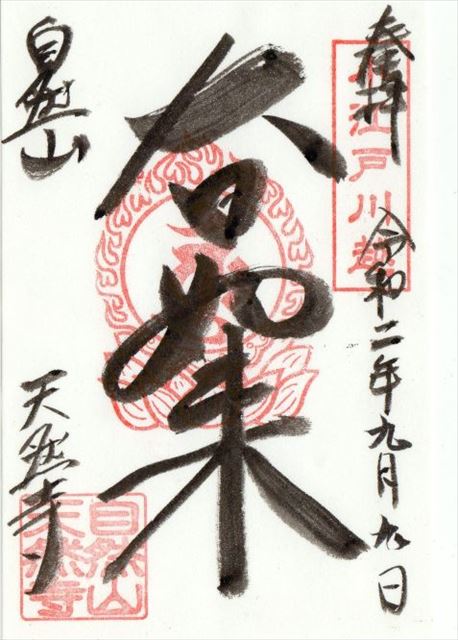 奉拝
小江戸川越
令和二年九月九日
大日如来
自然山
天然寺
自然山
天然寺